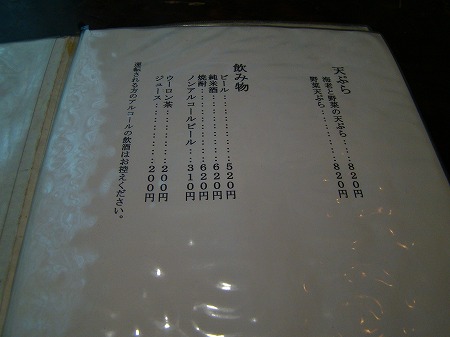 天ぷら
海老と野菜の天ぷら‥‥820円
野菜天ぷら‥‥‥‥‥820円
飲み物
ビール‥‥‥‥‥‥520円
純米酒‥‥‥‥‥‥620円
焼酎‥‥‥‥‥‥‥620円
ノンアルコールビール‥‥310円
ウーロン茶‥‥‥‥‥200円
ジュース‥‥‥‥‥‥200円
運転される方のアルコールの飲酒はお控えください。